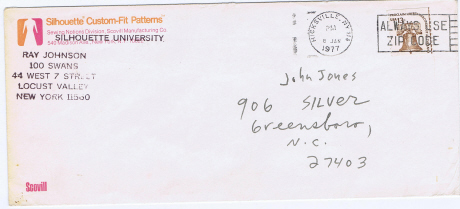 Silhouette® Custom-Fit Patterns™
Sewing Notions Division, Scovill Manufacturing Co.
SILHOUETTE UNIVERSITY
RAY JOHNSON
100 SWANS
44 WEST 7 STREET
LOCUST VALLEY
NEW YORK 11560
HICKSVILLE, NY
PM
6 JAN
1977
ALWAYS USE
ZIP CODE
13c
John Jones
906 SILVER
Greensboro,
N.C.
27403
Scovill